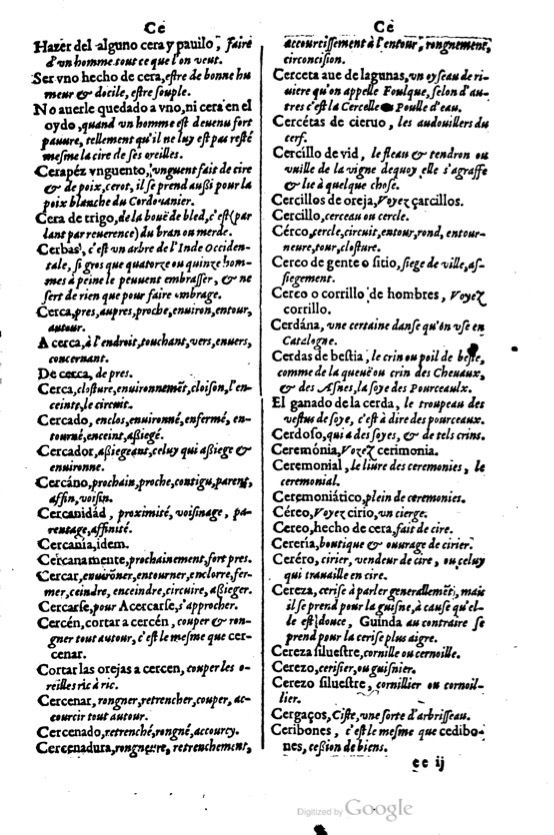 Ce
Hazer del alguno cera y pauilo, faire
d'un homme tout ce que l'on veut.
Ser vno hecho de cera, estre de bonne hu
meur & docile, estre souple.
No auerle quedado a vno, ni cera en el
oydo, quand un homme est deuenu fort
pauure, tellement qu'il ne luy est pas resté
mesme la cire de ses oreilles.
Cerapéz vnguento, unguent fait de cire
& de poix, cerot, il se prend außi pour la
poix blanche du Cordouanier.
Cera de trigo, de la bouë de bled, c'est (par
lant par reuerence) du bran ou merde.
Cerbas, c'est un arbre de l'Inde Occiden-
tale, si gros que quatorze ou quinze hom-
mes à peine le peuuent embrasser, & ne
sert de rien que pour faire umbrage.
Cerca, pres, aupres, proche, enuiron, entour,
autour.
A cerca, à l'endroit, touchant, vers, enuers,
concernant.
De cerca, de pres.
Cerca, closture, environnemēt, cloison, l'en-
ceinte, le circuit.
Cercado, enclos, enuironné, enfermé, en-
tourné, enceint, aßiegé.
Cercador, aßiegeant, celuy qui aßiege &
enuironne.
Cercáno, prochain, proche, contigu, parent,
affin, voisin.
Cercanidád, proximité, voisinage, pa-
rentage, affinité.
Cercania, idem.
Cercanamente, prochainement, fort pres.
Cercar, enuirōner, entourner, enclorre, fer-
mer, ceindre, enceindre, circuire, aßieger.
Cercarse, pour Acercarse, s'approcher.
Cercén, cortar a cercén, couper & ron-
gner tout autour, c'est le mesme que cer-
cenar.
Cortar las orejas a cercen, couper les o-
reilles ric à ric.
Cercenar, rongner, retrencher, couper, ac-
courcir tout autour.
Cercenado, retrenché, rongné, accourcy.
Cercenadura, rongneure, retrenchement,
Ce
accourtissement à l'entour, rongnement,
circoncision.
Cerceta aue de lagunas, un oyseau de ri-
uiere qu'on appelle Foulque, selon d'au-
tres c'est la Cercelle Poulle d'eau.
Cercétas de cieruo, les audouillers du
cerf.
Cercillo de vid, le fleau & tendron ou
vuille de la vigne dequoy elle s'agraffe
& lie à quelque chose.
Cercillos de oreja, Voyez çarcillos.
Cercillo, cerceau ou cercle.
Cérco, cercle, circuit, entour, rond, entour-
neure, tour, closture.
Cerco de gente o sitio, siege de ville, as-
siegement.
Cerco o corrillo de hombres, Voyez
corrillo.
Cerdána, une certaine danse qu'on use en
Catalogne.
Cerdas de bestia, le crin ou poil de beste,
comme de la queuë ou crin des Cheuaux,
& des Asnes, la soye des Pourceaulx.
El ganado de la cerda, le troupeau des
vestus de soye, c'est à dire des pourceaux.
Cerdoso, qui a des soyes, & de tels crins.
Ceremónia, Voyez cerimonia.
Ceremonial, le liure des ceremonies, le
ceremonial.
Ceremoniático, plein de ceremonies.
Céreo, Voyez cirio, un cierge.
Cereo, hecho de cera, fait de cire.
Cereria, boutique & ouurage de cirier.
Ceréro, cirier, vendeur de cire, ou celuy
qui trauaille en cire.
Cereza, cerise à parler generallemēt, mais
il se prend pour la guisne, à cause qu'el-
le est douce, Guinda au contraire se
prend pour la cerise plus aigre.
Cereza siluestre, cornille ou cernoille.
Cerezo, cerisier, ou guisnier.
Cerezo siluestre, cornillier ou cornoil-
lier.
Cergaços, Ciste, une sorte d'arbrisseau.
Ceribones, c'est le mesme que cedibo-
nes, ceßion de biens.
ee ij
Digitized by Google